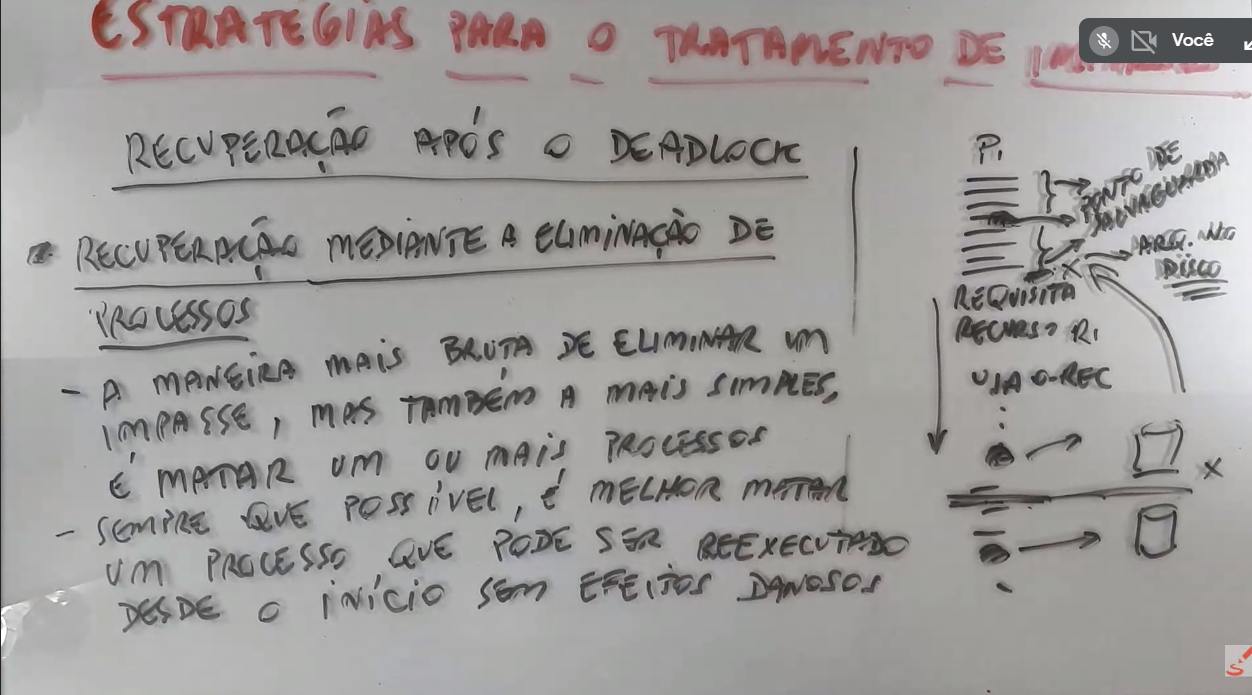 ESTRATÉGIAS PARA O TRATAMENTO DE
Você
RECUPERAÇÃO APÓS O DEADLOCK
RECUPERAÇÃO MEDIANTE A ELIMINAÇÃO DE
PROCESSOS
- A MANEIRA MAIS BRUTA DE ELIMINAR UM
IMPASSE, MAS TAMBÉM A MAIS SIMPLES,
É MATAR UM OU MAIS PROCESSOS
- SEMPRE QUE POSSÍVEL, É MELHOR MATAR
UM PROCESSO QUE PODE SER REEXECUTADO
DESDE O INÍCIO SEM EFEITOS DANOSOS
P1
PONTO DE
SALVAGUARDA
ARQ. NO
DISCO
X
REQUISITA
RECURSO R1
USA O REC
X
S